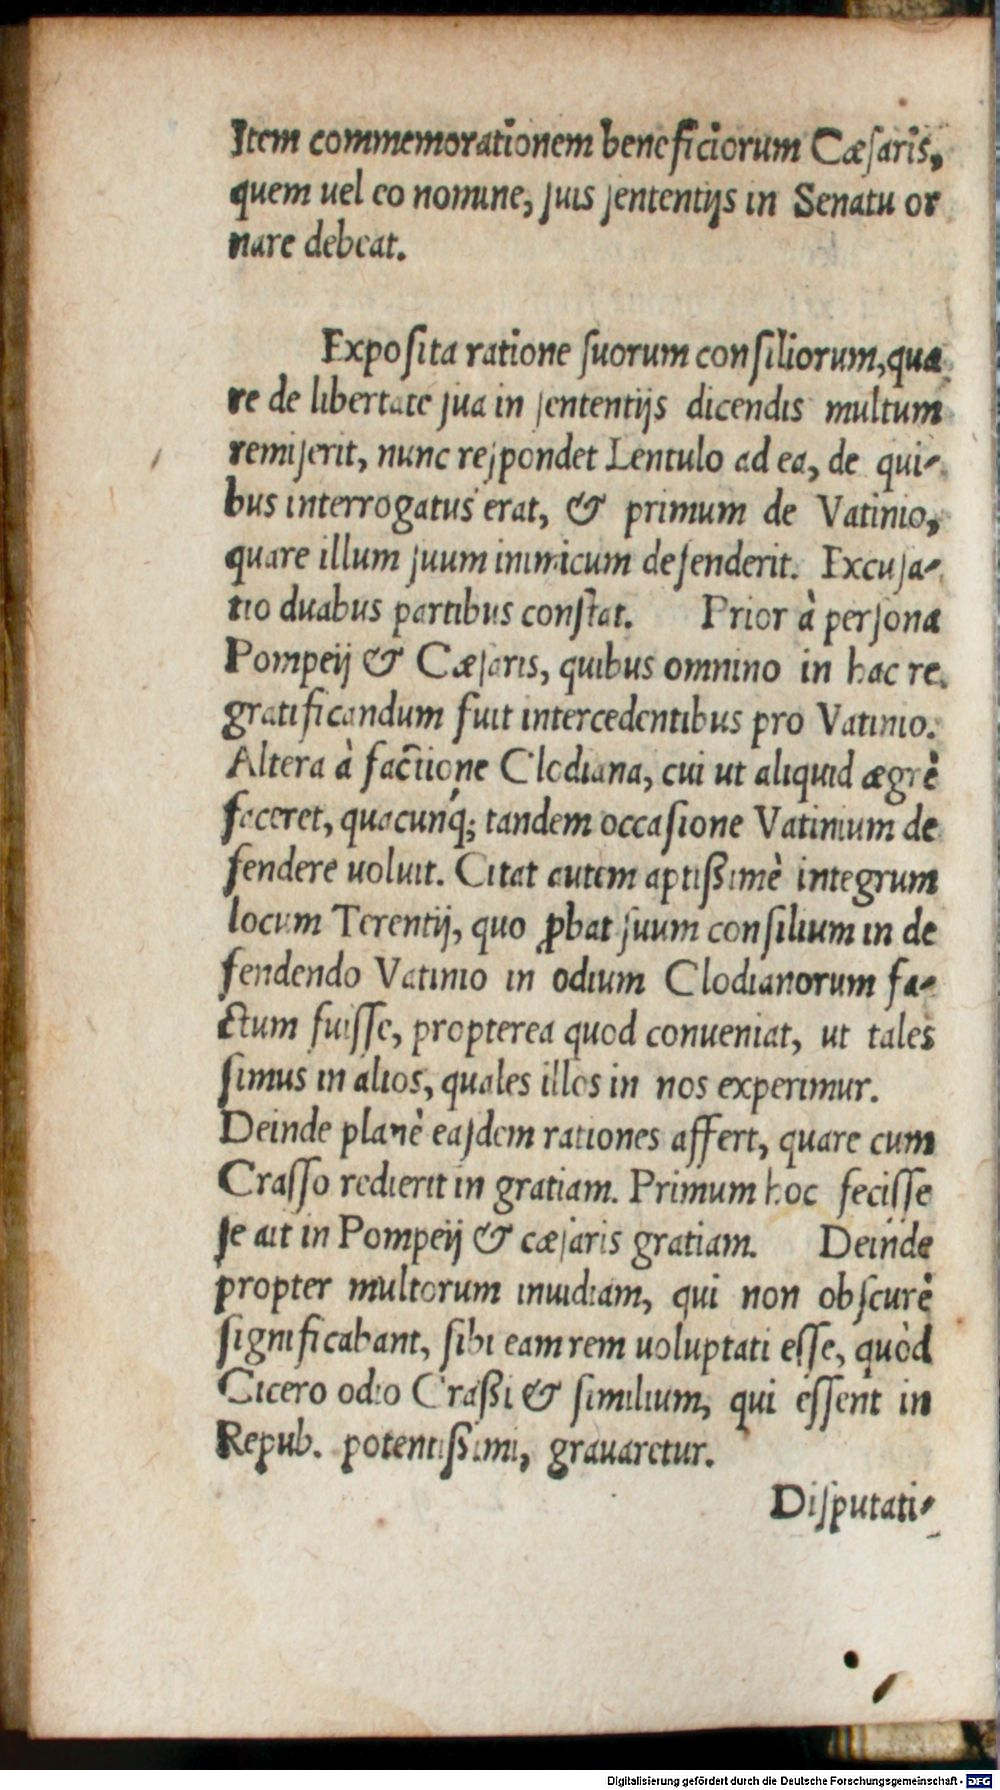 Item commemorationem beneficiorum Cæsaris,
quem uel eo nomine, suis sententijs in Senatu or
nare debeat.
Exposita ratione suorum consiliorum, qua
re de libertate sua in sententijs dicendis multum
remiserit, nunc respondet Lentulo ad ea, de qui-
bus interrogatus erat, & primum de Vatinio,
quare illum suum inimicum defenderit. Excusa-
tio duabus partibus constat. Prior à persona
Pompeij & Cæsaris, quibus omnino in hac re
gratificandum fuit intercedentibus pro Vatinio.
Altera à factione Clodiana, cui ut aliquid ægrè
faceret, quacunq; tandem occasione Vatinium de
fendere uoluit. Citat autem aptißimè integrum
locum Terentij, quo ꝓbat suum consilium in de
fendendo Vatinio in odium Clodianorum fa-
ctum fuisse, propterea quod conueniat, ut tales
simus in alios, quales illos in nos experimur.
Deinde planè easdem rationes affert, quare cum
Crasso redierit in gratiam. Primum hoc fecisse
se ait in Pompeij & cæsaris gratiam. Deinde
propter multorum inuidiam, qui non obscurè
significabant, sibi eam rem uoluptati esse, quòd
Cicero odio Craßi & similium, qui essent in
Repub. potentißimi, grauaretur.
Disputati-
Digitalisierung gefördert durch die Deutsche Forschungsgemeinschaft - DFG